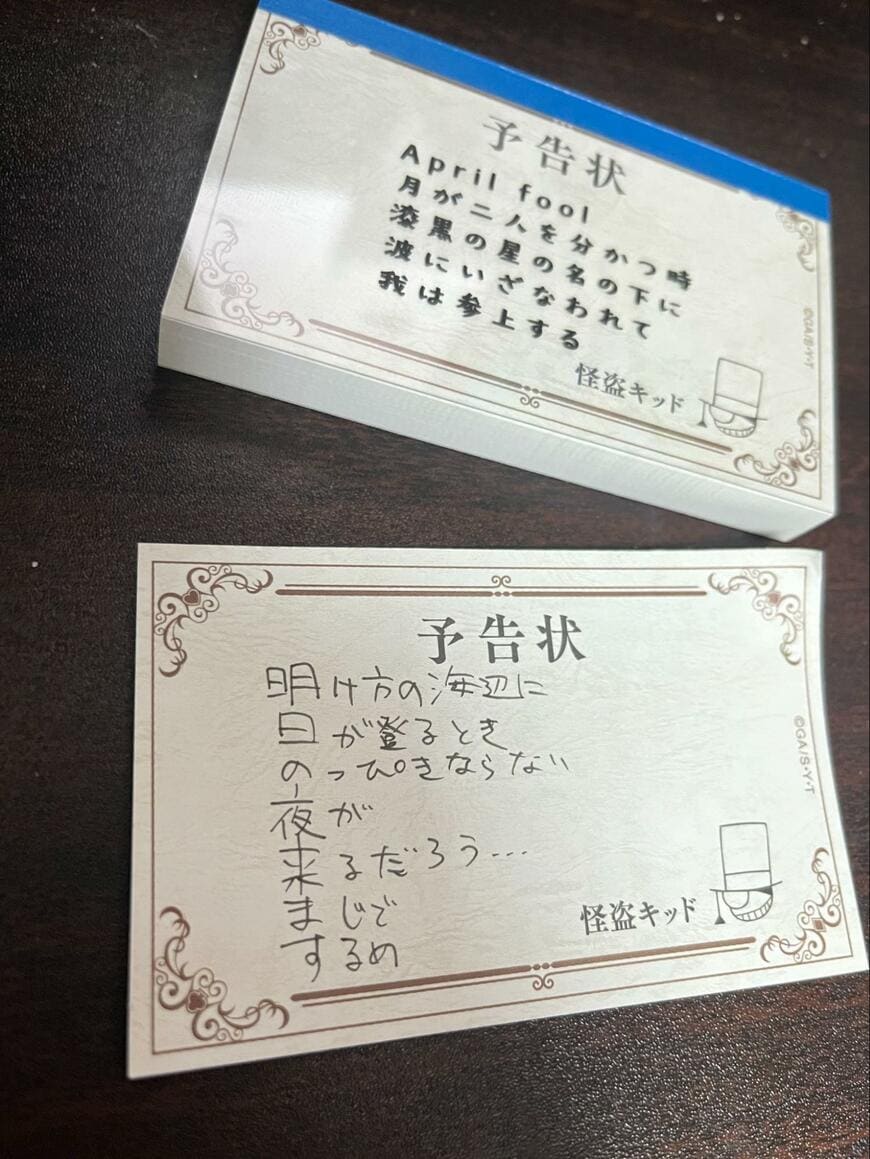 予告状
April fool
月が二人を分かつ時
漆黒の星の名の下に
波にいざなわれて
我は参上する
怪盗キッド
©GA/S・Y・T
予告状
明け方の海辺に
日が登るとき
のっぴきならない
夜が
来るだろう…
まじで
するめ
怪盗キッド
©GA/S・Y・T